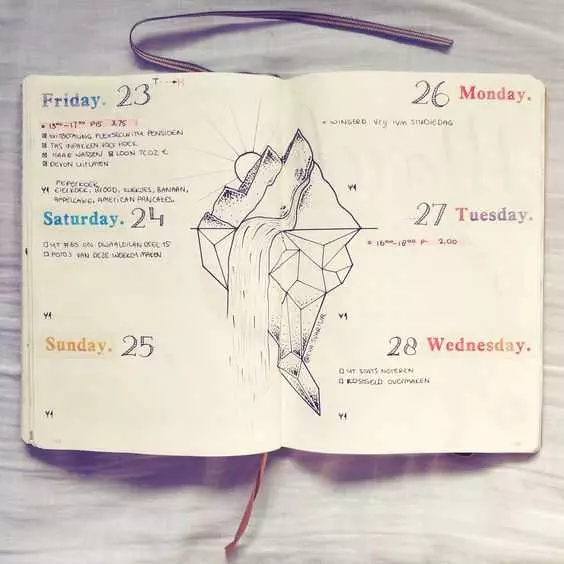 Friday. 23
T → H
13⁰⁰-17⁰⁰ P15 3.75
UITBETALING FLEXSECURITY PENSIOEN
TAS INPAKKEN VOOR HOEK
HAAR WASSEN & LOON TCOZ €
DEVON UITLATEN
PEPERKOEK,
EIERKOEK, BROOD, KOEKJES, BANAAN,
APPELCAKE, AMERICAN PANCAKES.
Saturday. 24
YT #65 ON DWAALDILAN DEEL 15
FOTO'S VAN DEZE WEEK MAKEN
Sunday. 25
26 Monday.
WINGERD VRIJ IVM STUDIEDAG
27 Tuesday.
16⁰⁰-18⁰⁰ P- 2.00
28 Wednesday.
YT STATS NOTEREN
KOSTGELD OVERMAKEN